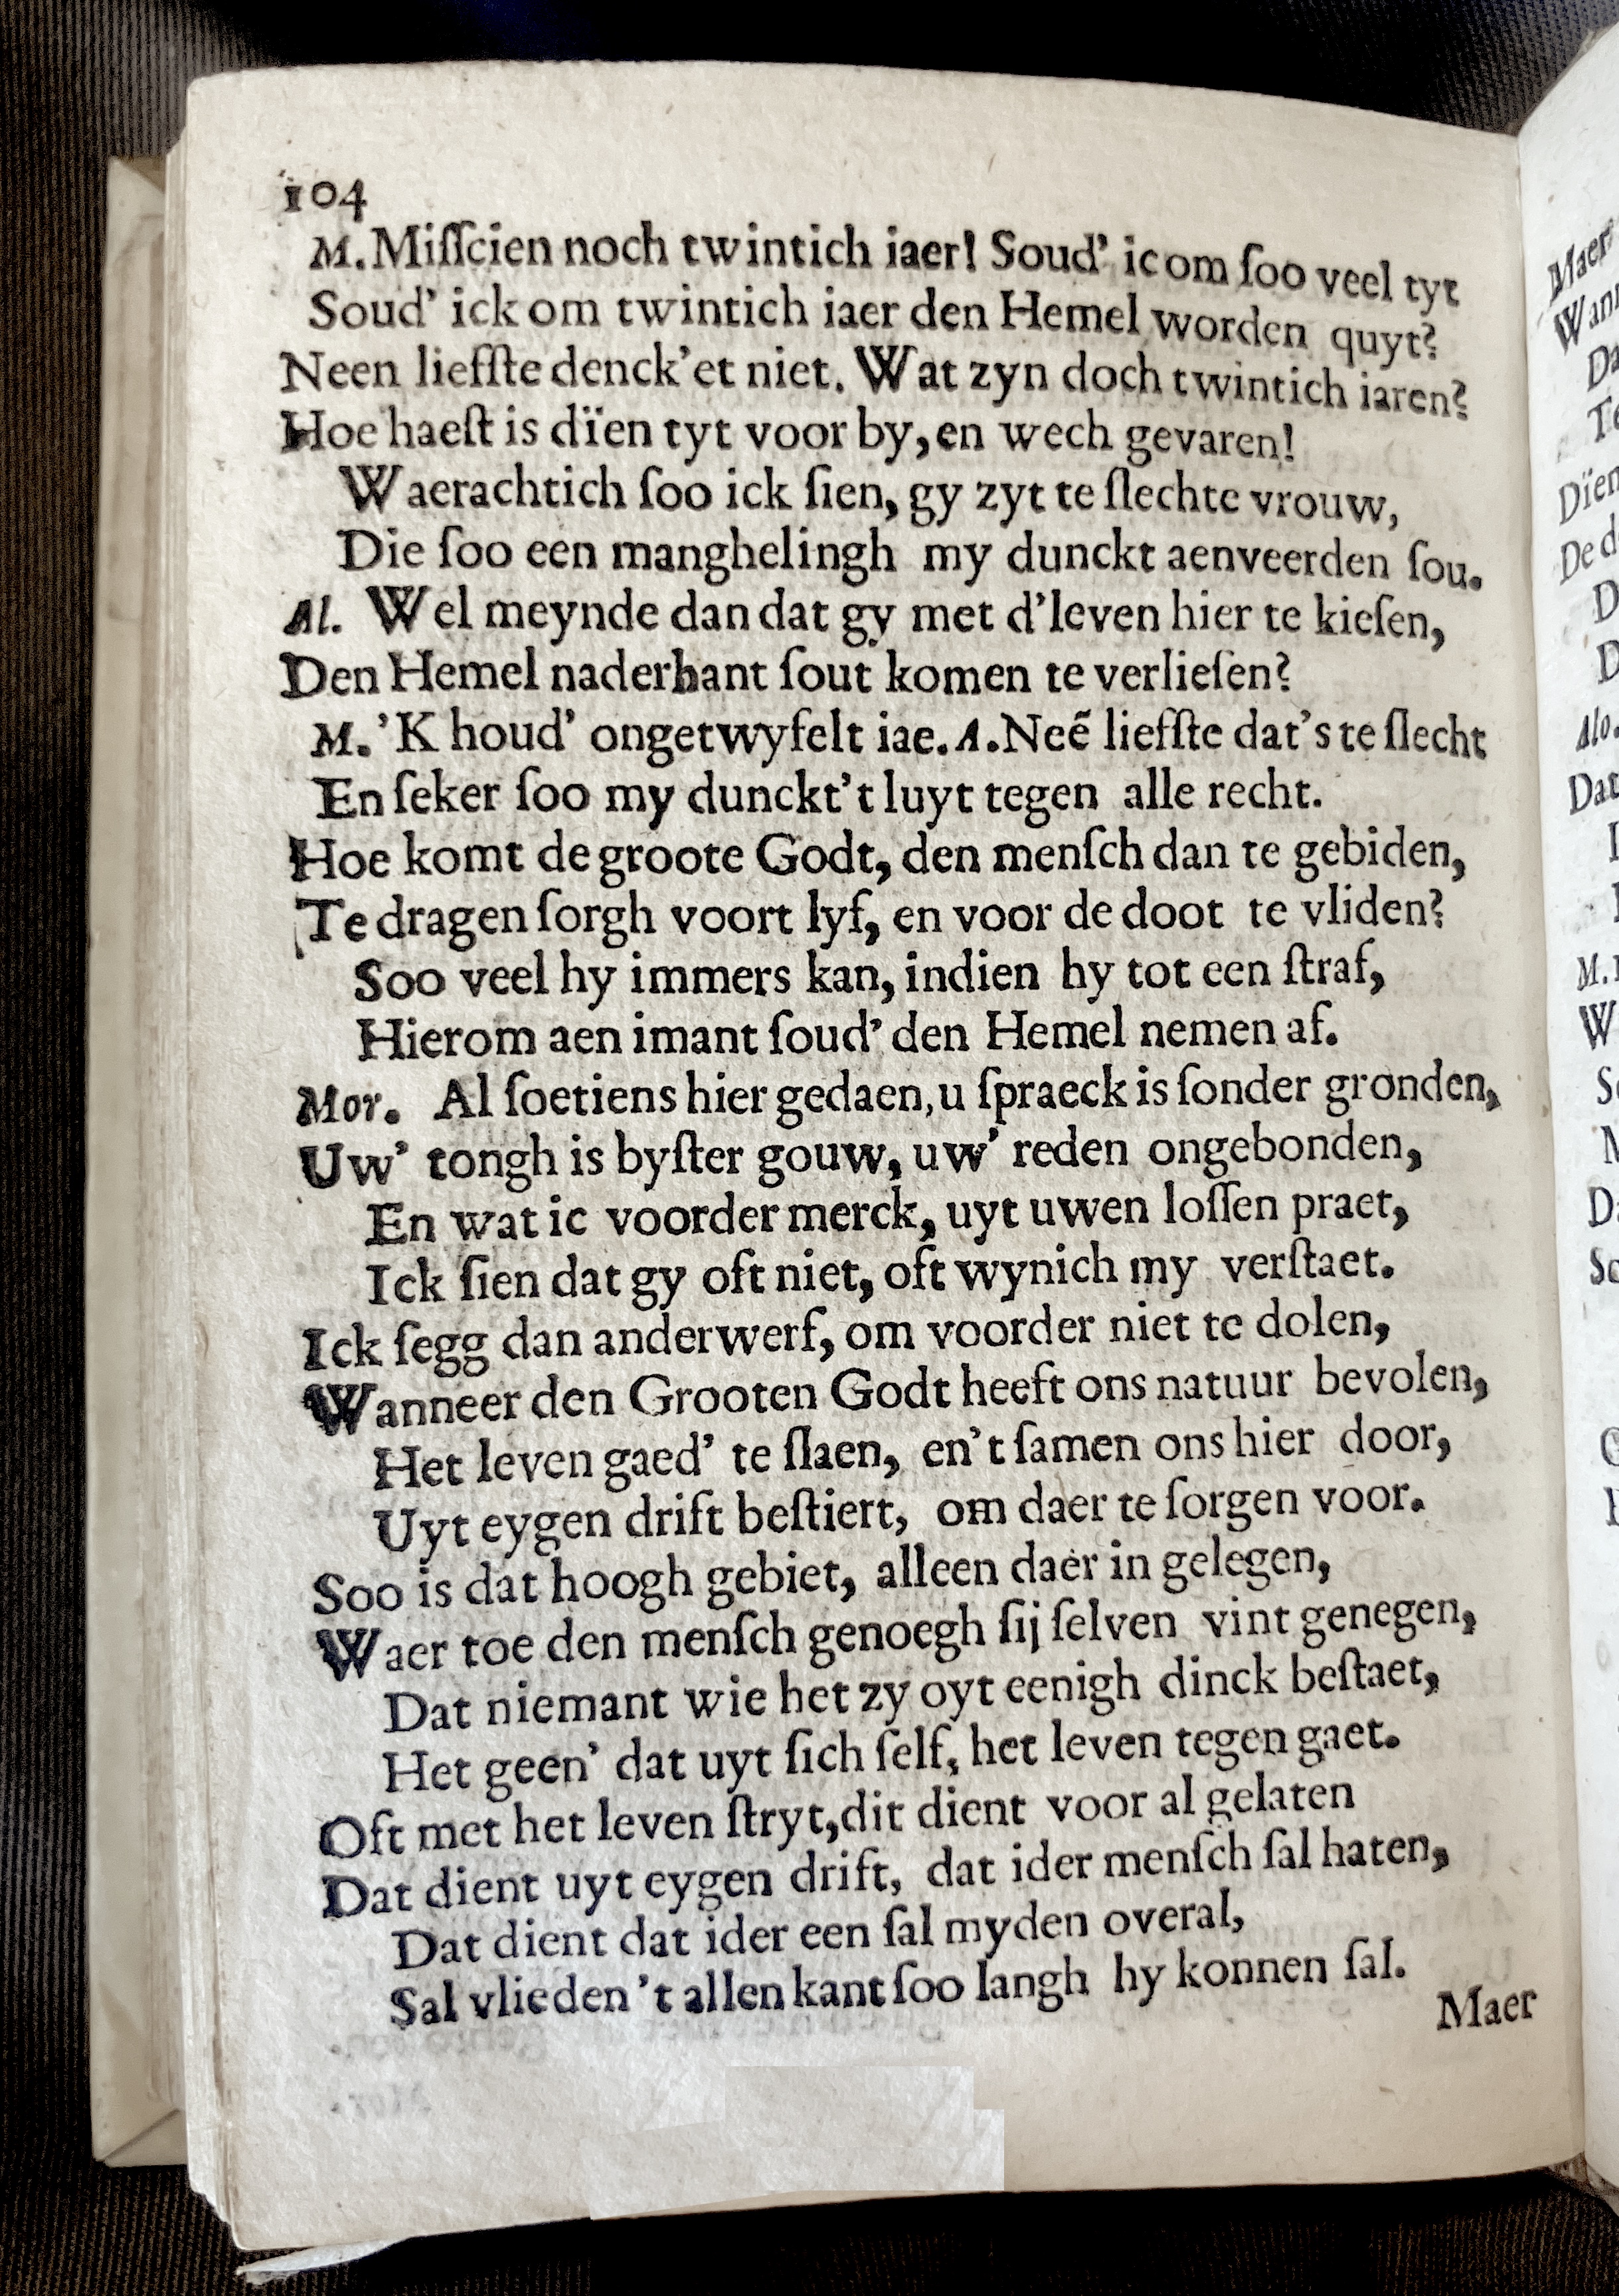 104
M. Miſſcien noch twintich iaer! Soud' ic om ſoo veel tyt
Soud' ick om twintich iaer den Hemel worden quyt?
Neen liefſte denck'et niet. Wat zyn doch twintich iaren?
Hoe haeſt is dïen tyt voor by, en wech gevaren!
Waerachtich ſoo ick ſien, gy zyt te ſlechte vrouw,
Die ſoo een manghelingh my dunckt aenveerden ſou.
Al. Wel meynde dan dat gy met d'leven hier te kieſen,
Den Hemel naderhant ſout komen te verlieſen?
M. 'K houd' ongetwyfelt iae. A. Neẽ liefſte dat's te ſlecht
En ſeker ſoo my dunckt't luyt tegen alle recht.
Hoe komt de groote Godt, den menſch dan te gebiden,
Te dragen ſorgh voort lyf, en voor de doot te vliden?
Soo veel hy immers kan, indien hy tot een ſtraf,
Hierom aen imant ſoud' den Hemel nemen af.
Mor. Al ſoetiens hier gedaen, u ſpraeck is ſonder gronden,
Uw' tongh is byſter gouw, uw' reden ongebonden,
En wat ic voorder merck, uyt uwen loſſen praet,
Ick ſien dat gy oft niet, oft wynich my verſtaet.
Ick ſegg dan anderwerf, om voorder niet te dolen,
Wanneer den Grooten Godt heeft ons natuur bevolen,
Het leven gaed' te ſlaen, en't ſamen ons hier door,
Uyt eygen drift beſtiert, om daer te ſorgen voor.
Soo is dat hoogh gebiet, alleen daer in gelegen,
Waer toe den menſch genoegh ſij ſelven vint genegen,
Dat niemant wie het zy oyt eenigh dinck beſtaet,
Het geen' dat uyt ſich ſelf, het leven tegen gaet.
Oft met het leven ſtryt, dit dient voor al gelaten
Dat dient uyt eygen drift, dat ider menſch ſal haten,
Dat dient dat ider een ſal myden overal,
Sal vlieden 't allen kant ſoo langh hy konnen ſal.
Maer